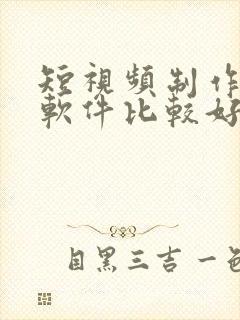 短視頻制作
軟件比較好
目黑三吉一色